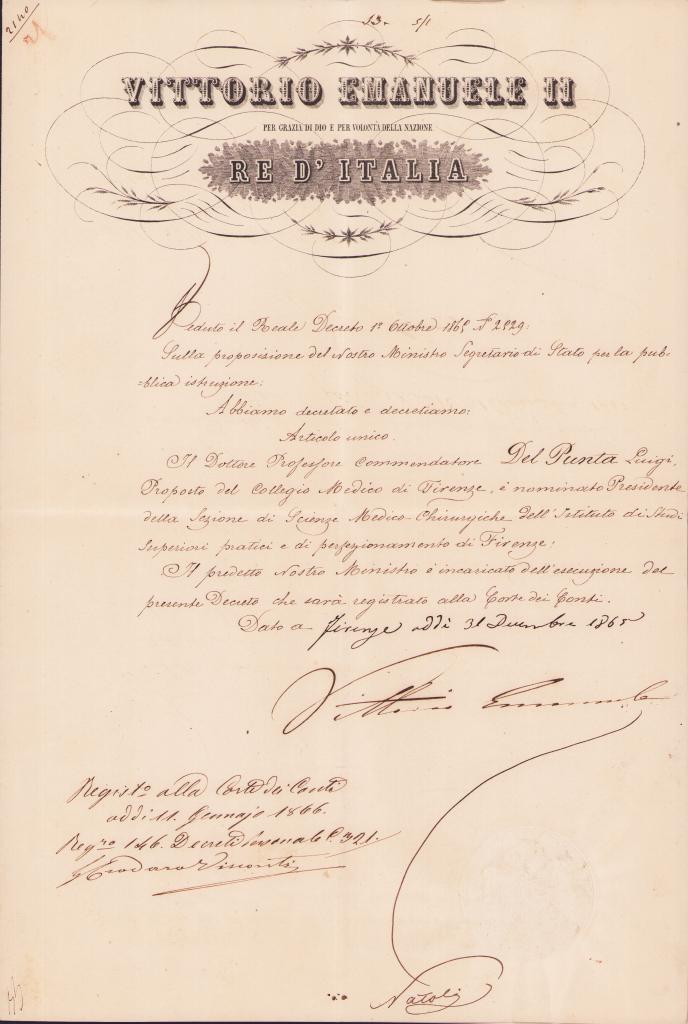 2140
13- 5/1
VITTORIO EMANUELE II
PER GRAZIA DI DIO E PER VOLONTÀ DELLA NAZIONE
RE D'ITALIA
Veduto il Reale Decreto 1º Ottobre 1865 Nº 2529:
Sulla proposizione del Nostro Ministro Segretario di Stato per la pub-
=blica istruzione:
Abbiamo decretato e decretiamo:
Articolo unico.
Il Dottore Professore Commendatore Del Punta Luigi,
Proposto del Collegio Medico di Firenze, è nominato Presidente
della Sezione di Scienze Medico-Chirurgiche dell'Istituto di Studi
superiori pratici e di perfezionamento di Firenze;
Il predetto Nostro Ministro è incaricato dell'esecuzione del
presente Decreto che sarà registrato alla Corte dei Conti.
Dato a Firenze addì 31 Dicembre 1865
Vittorio Emanuele
Registº alla Corte dei Conti
addì 11. Gennajo 1866.
Regro 146. Decreti Personale C. 321.
Visconti
Natoli